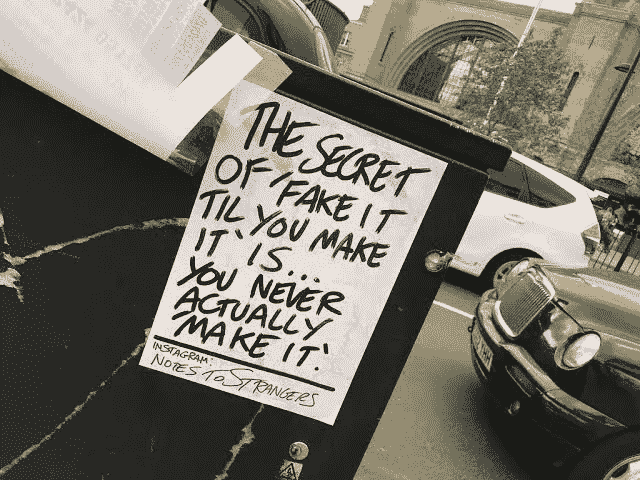 THE SECRET
OF 'FAKE IT
TIL YOU MAKE
IT' IS...
YOU NEVER
ACTUALLY
'MAKE IT.'
INSTAGRAM:
NOTES TO STRANGERS